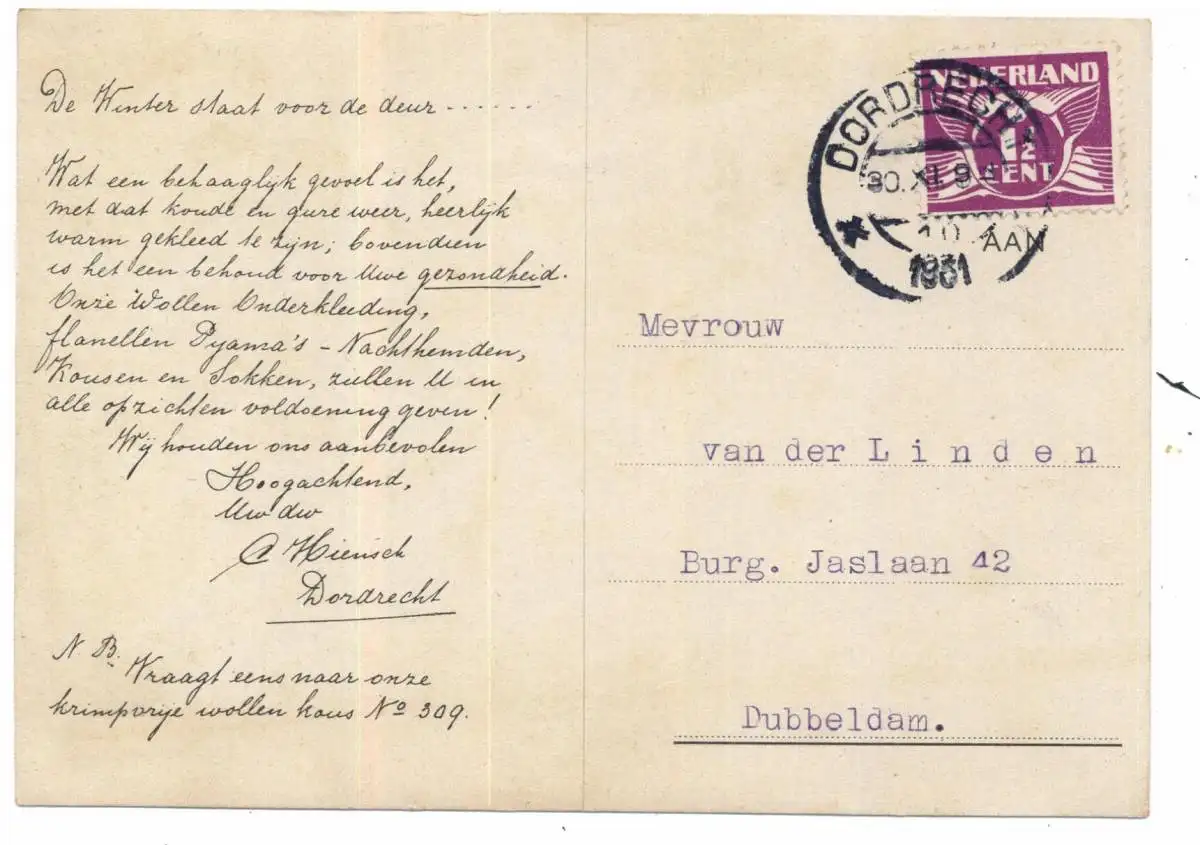 De Winter staat voor de deur ......
Wat een behaaglijk gevoel is het,
met dat koude en gure weer, heerlijk
warm gekleed te zijn; bovendien
is het een behoud voor Uwe gezondheid.
Onze Wollen Onderkleeding,
flanellen Pyama's - Nachthemden,
Kousen en Sokken, zullen U in
alle opzichten voldoening geven!
Wij houden ons aanbevolen
Hoogachtend,
Uw dw
C Hiensch
Dordrecht
N.B. Vraagt eens naar onze
krimpvrije wollen kous No 309.
NEDERLAND
1½
CENT
DORDRECHT
30.XI. 9
1931
AAN
Mevrouw
van der Linden
Burg. Jaslaan 42
Dubbeldam.